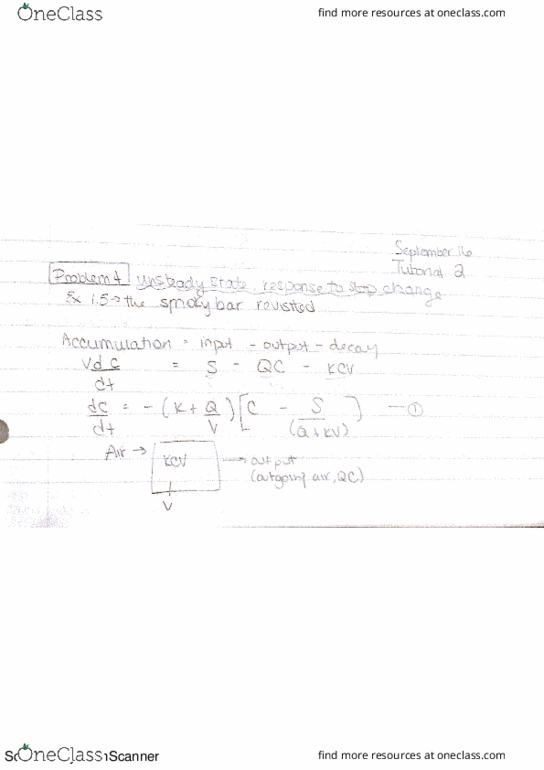 OneClass
find more resources at oneclass.com
September 16
Tutorial 2
Problem 1 unsteady state, response to step change
Ex 1.5 → the smoky bar revisited
Accumulation = input - output - decay
V dC/dt = S - QC - KCV
dC/dt = - (K + Q/V) [C - S/(Q+KV)] — ①
Air → KCV → output
(outgoing air, QC)
V
OneClass Scanner
find more resources at oneclass.com